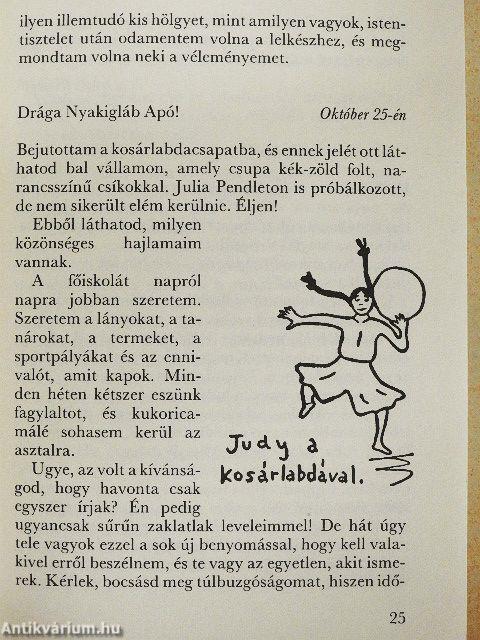 ilyen illemtudó kis hölgyet, mint amilyen vagyok, isten-
tisztelet után odamentem volna a lelkészhez, és meg-
mondtam volna neki a véleményemet.
Drága Nyakigláb Apó! Október 25-én
Bejutottam a kosárlabdacsapatba, és ennek jelét ott lát-
hatod bal vállamon, amely csupa kék-zöld folt, na-
rancsszínű csíkokkal. Julia Pendleton is próbálkozott,
de nem sikerült elém kerülnie. Éljen!
Ebből láthatod, milyen
közönséges hajlamaim
vannak.
A főiskolát napról
napra jobban szeretem.
Szeretem a lányokat, a ta-
nárokat, a termeket, a
sportpályákat és az enni-
valót, amit kapok. Min-
den héten kétszer eszünk
fagylaltot, és kukorica-
málé sohasem kerül az
asztalra.
Ugye, az volt a kívánsá-
god, hogy havonta csak
egyszer írjak? Én pedig
ugyancsak sűrűn zaklatlak leveleimmel! De hát úgy
tele vagyok ezzel a sok új benyomással, hogy kell vala-
kivel erről beszélnem, és te vagy az egyetlen, akit isme-
rek. Kérlek, bocsásd meg túlbuzgóságomat, hiszen idő-
Judy a
kosárlabdával.
25
Antikvárium.hu